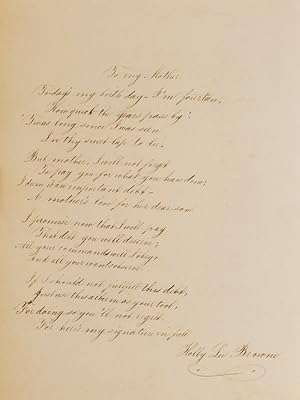 To my Mother
To day's my birth day – I'm fourteen,
How quick the years pass by!
'Twas long since I was seen
In thy sweet lap to lie.
But mother, I will not forget
To pay you for what you have done;
I owe an important debt –
A mother's love for her dear son
I promise now that I will pay
That debt you will deserve;
All your commands will I obey,
And all your wants observe.
If I should not fulfill this debt,
Just use this album as your tool,
For doing so you'll not regret.
For here's my signature in full
Holly Lee Browne